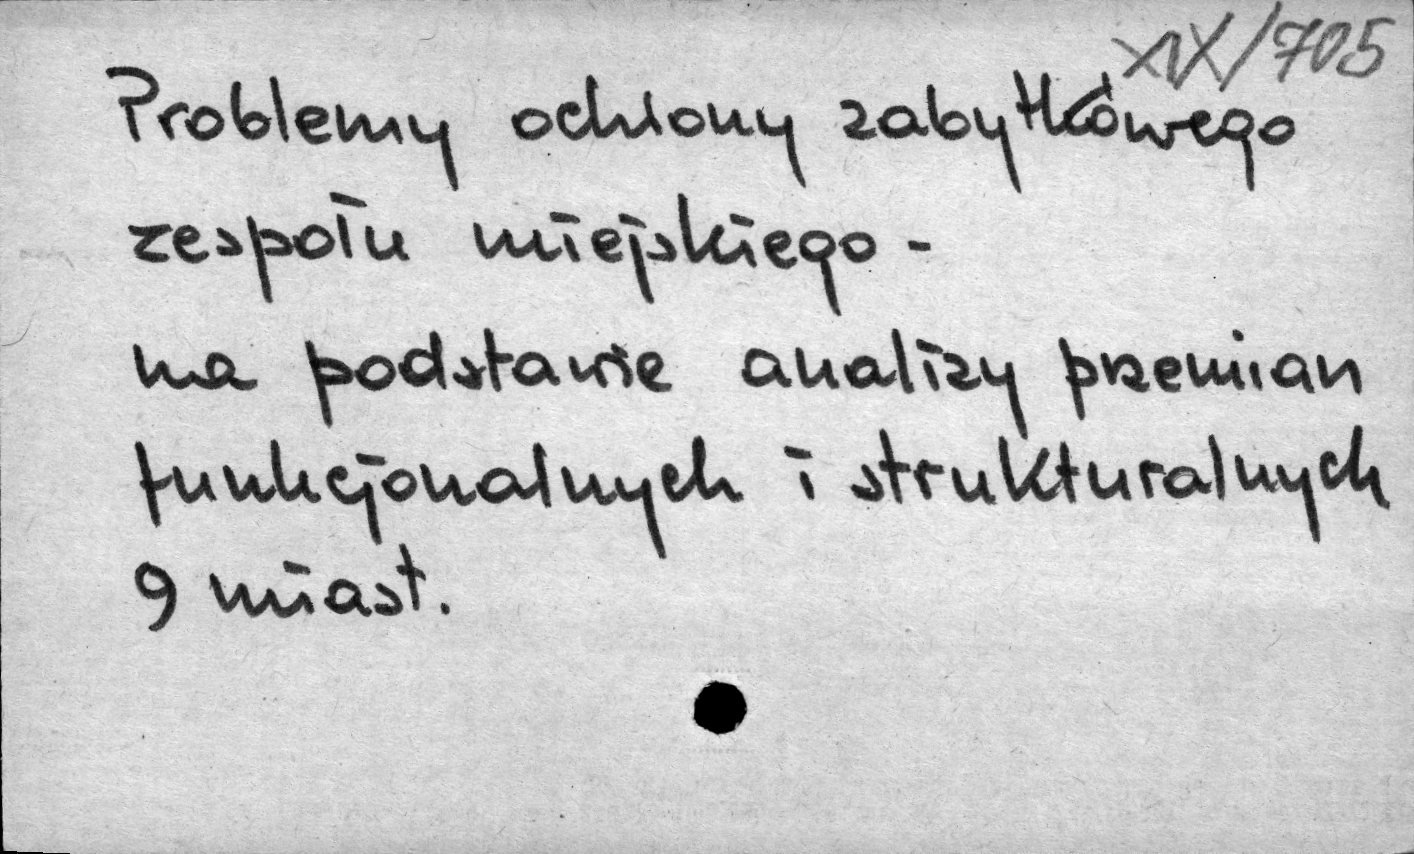 XIX/705
Problemy ochrony zabytkówego
zespołu miejskiego -
na podstawie analizy przemian
funkcjonalnych i strukturalnych
9 miast.